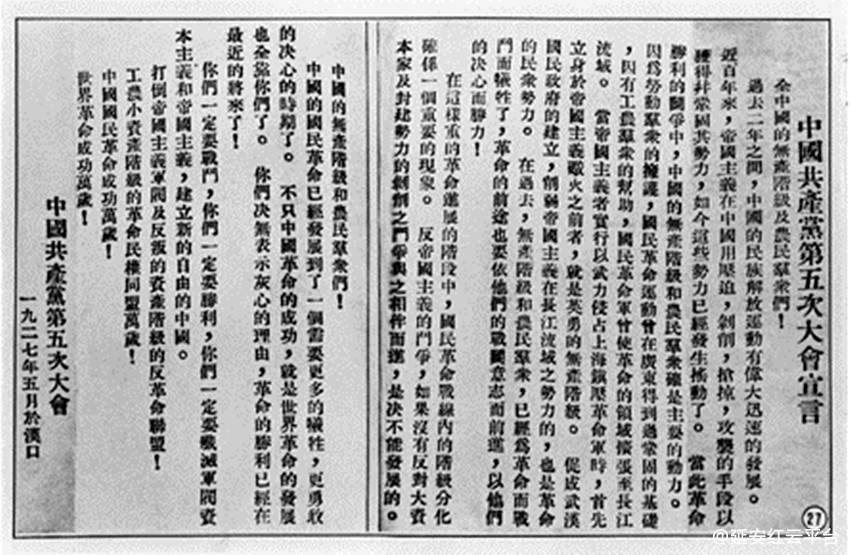 中國共產黨第五次大會宣言
全中國的無產階級及農民羣衆們！
過去二年之間，中國的民族解放運動有偉大迅速的發展。
近百年來，帝國主義在中國用壓迫，剝削，搶掠，攻襲的手段以
獲得幷鞏固其勢力，如今這些勢力已經發生搖動了。　當此革命
勝利的鬬爭中，中國的無產階級和農民羣衆確是主要的動力。
因爲勞動羣衆的擁護，國民革命運動曾在廣東得到過鞏固的基礎
，因有工農羣衆的幫助，國民革命軍曾使革命的領域擴張至長江
流域。　當帝國主義者實行以武力侵占上海鎮壓革命軍時，首先
立身於帝國主義礮火之前者，就是英勇的無產階級。　促成武漢
國民政府的建立，削弱帝國主義在長江流域之勢力的，也是革命
的民衆勢力。　在過去，無產階級和農民羣衆，已經爲革命而戰
鬬而犧牲了，革命的前途也要依他們的戰鬬意志而前進，以他們
的决心而勝力！
在這樣重的革命進展的階段中，國民革命戰線內的階級分化
確係一個重要的現象。　反帝國主義的鬥爭，如果沒有反對大資
本家及封建勢力的剝削之鬥爭與之相伴而進，是决不能發展的。
中國的無產階級和農民羣衆們！
中國的國民革命已經發展到了一個需要更多的犧牲，更勇敢
的决心的時期了。　不只中國革命的成功，就是世界革命的發展
也全靠你們了。　你們决無表示灰心的理由，革命的勝利已經在
最近的將來了！
你們一定要戰鬥，你們一定要勝利，你們一定要殲滅軍閥資
本主義和帝國主義，建立新的自由的中國。
打倒帝國主義軍閥及反叛的資產階級的反革命聯盟！
工農小資產階級的革命民權同盟萬歲！
中國國民革命成功萬歲！
世界革命成功萬歲！
中國共產黨第五次大會
一九二七年五月於漢口
27
@延安红云平台